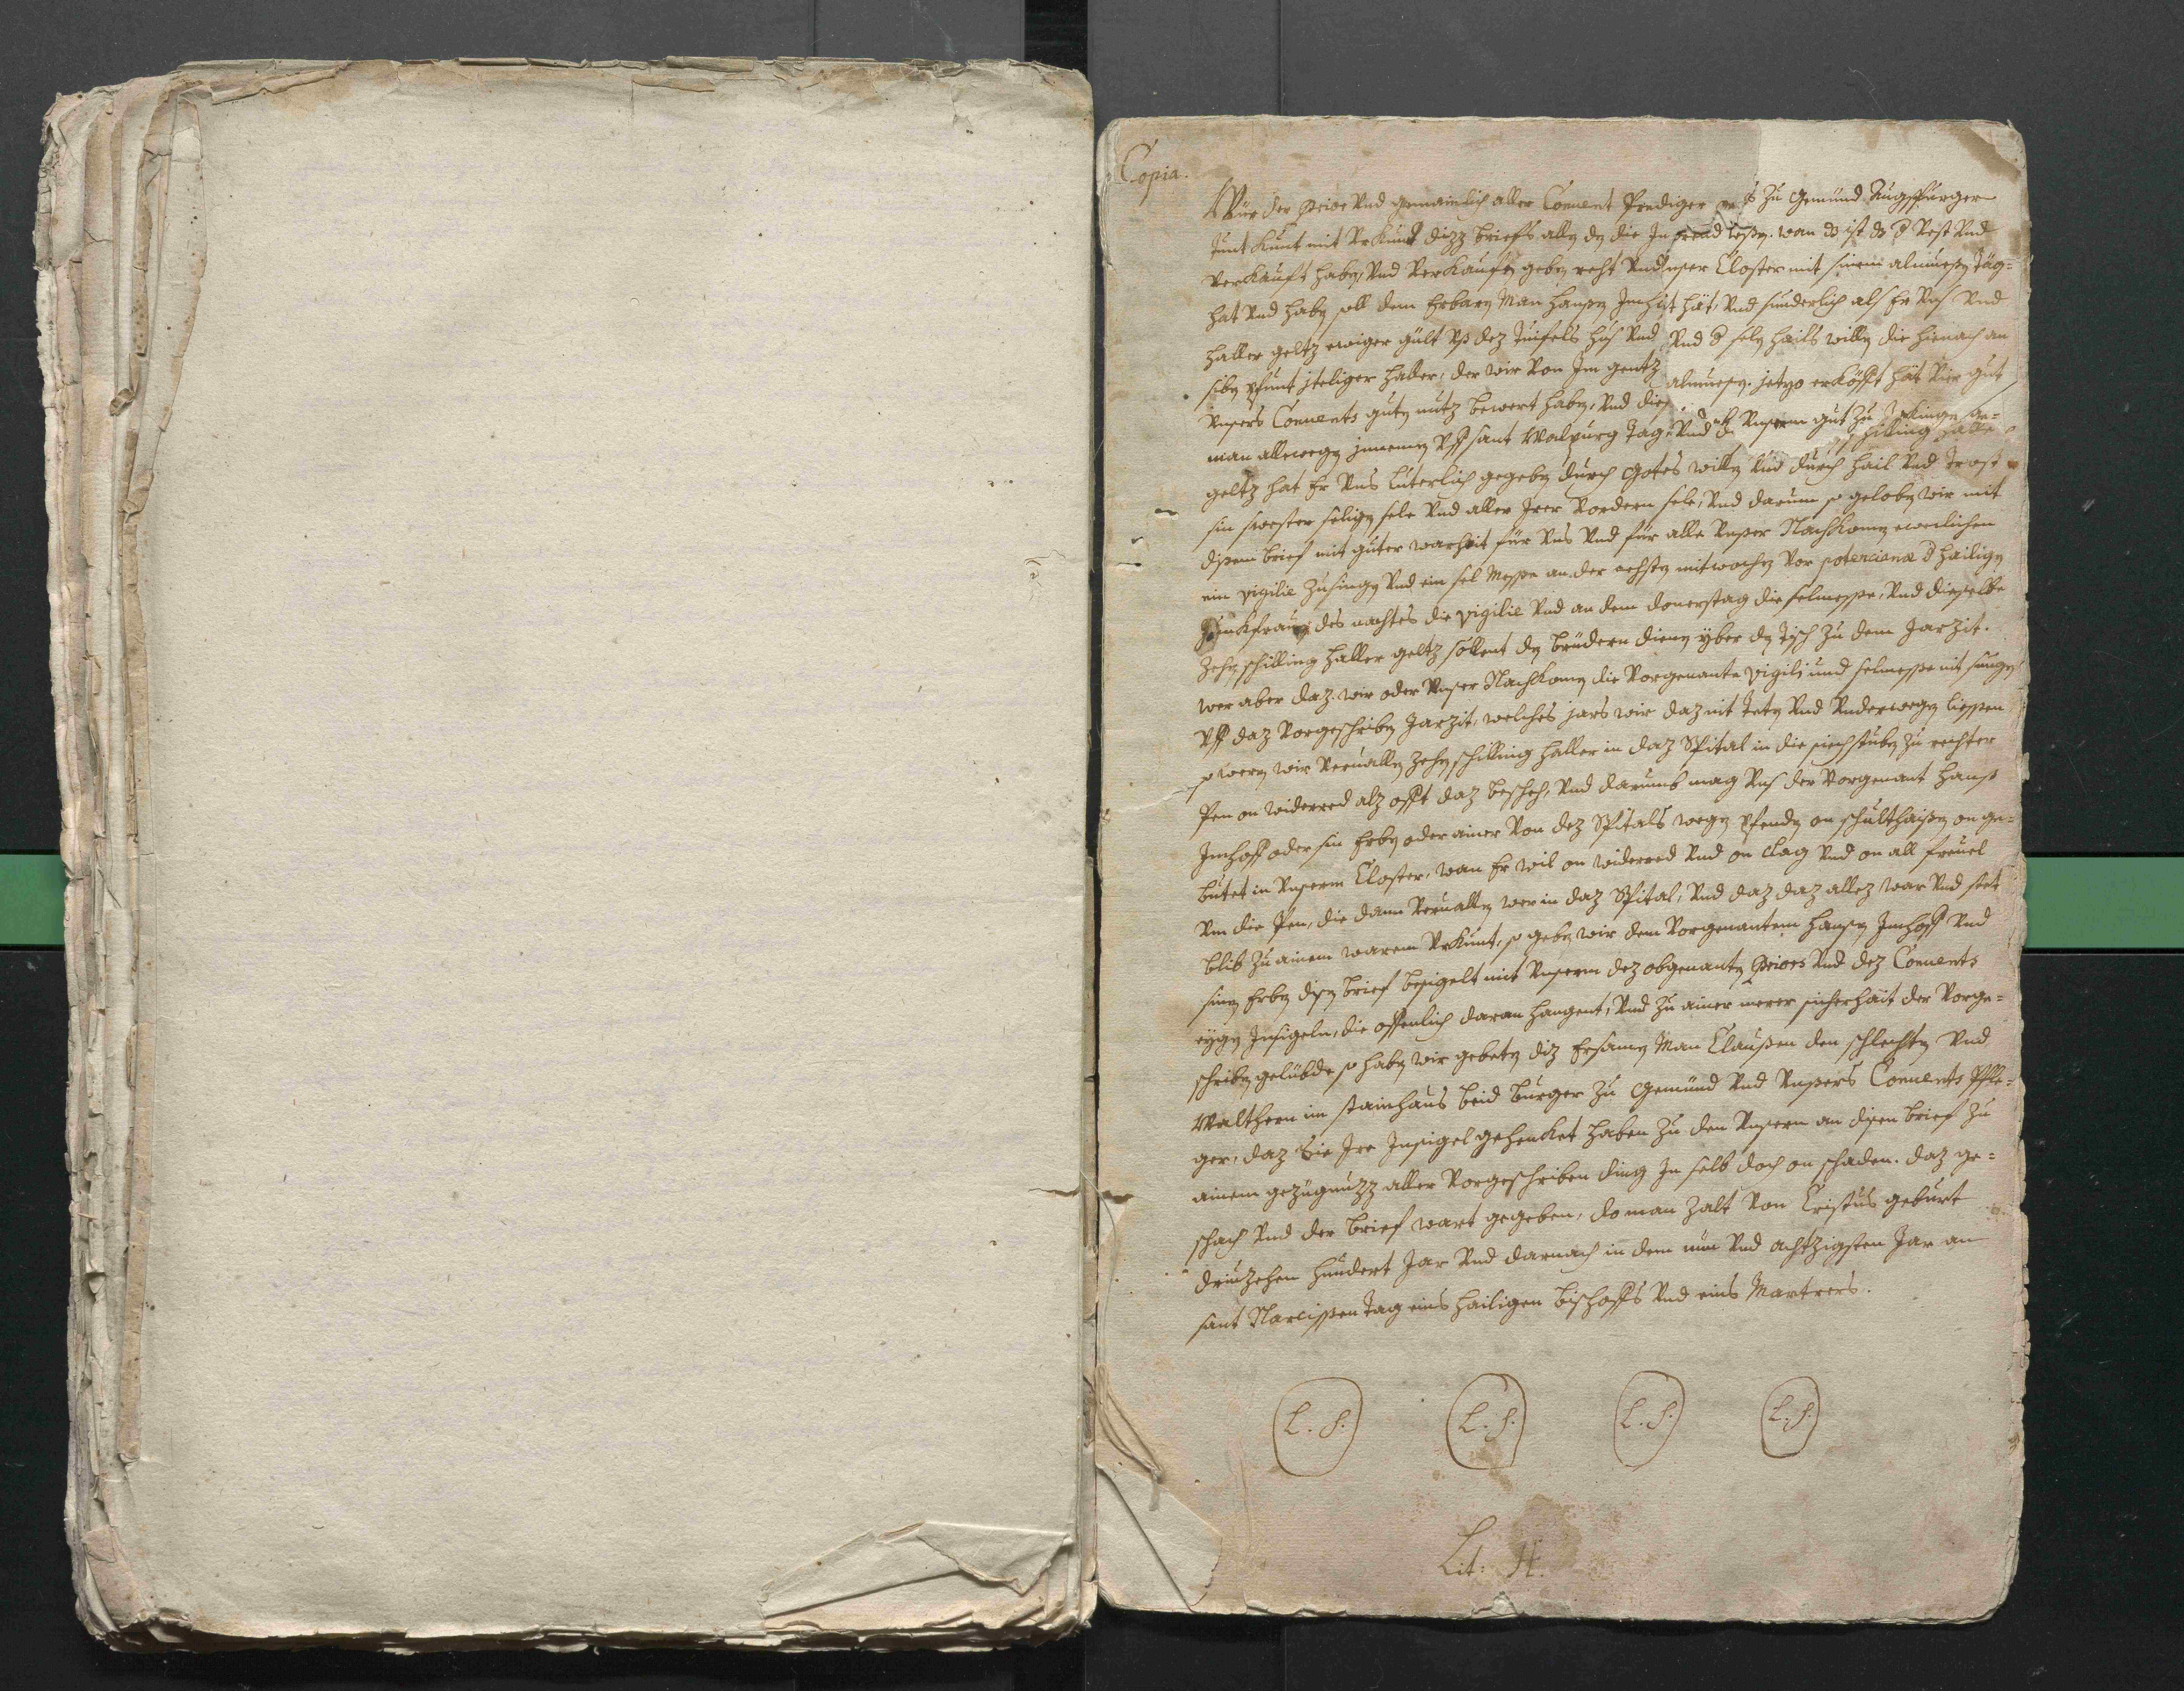 Copia.
Wür der Prior Vnd gemainlich aller Conuent Prediger ... zu Gemünd Augspurger
tunt kunt mit Vrkund dizz briefs allen den die In ... lesen. wan ds ist ds d Vest Vnd
Verkauft haben, Vnd Verkauffen geben reht Vnd vnser Closter mit sinem almuesen täg=
hat Vnd haben soll dem Erbarn Man Hansen Imhoff hät, Vnd sunderlich als Er Vns Vnd
haller geltz ewiger gült Vß dez Tuifels hus Vnd Vnd d selen hails willen die hienach an
siben pfunt jteliger haller, der wir Von Im gentz almuesen. jetzo erköfft hät Vier gut
Vnsers Conuents guten nutz bewert haben, Vnd dies
man allewegen jnnemen Vff sant Walpurg tag, Vnd Vnserm gut zu ... ge=
schilling haller
geltz hat Er Vns luterlich gegeben durch Gotes willen Vnd durch hail Vnd trost
sin swester seligen sele Vnd aller Irer Vordern sele, Vnd darum so geloben wir mit
disem brief mit guter warhait für Vns Vnd für alle Vnser Nachkomen ewenlichen
ein vigilie zu singen Vnd ein sel Messe an der nehsten mitwochen Vor potencianæ d hailigen
Junkfrauen, des nachtes die vigilie Vnd an dem donerstag die selmesse, Vnd dieselbe
zehen schilling haller geltz sollent den brüdern dienen yber den Tisch zu dem Jarzit.
wer aber daz wir oder Vnser Nachkomen die Vorgenante vigilj und selmesse nit sungen
Vff daz Vorgeschriben Jarzit, welches jars wir daz nit teten Vnd Vnderwegen liessen
so weren wir Veruallen zehen schilling haller in daz Spital in die siechstuben zu rechter
Pen on widerred alz offt daz beschch, Vnd darumb mag Vns der Vorgenant Hanß
Imhoff oder sin Erben oder ainer Von dez Spitals wegen pfenden on schulthaißen on ge=
butet in Vnserm Closter, wan Er wil on widerred Vnd on clag Vnd on all freuel
Vm die Pen, die dann Veruallen wer in daz Spital, Vnd daz daz allez war Vnd stet
blib zu ainem warem Vrkunt, so geben wir dem Vorgenantem Hansen Imhoff Vnd
sinen Erben disen brief besigelt mit Vnserm dez obgenanten Priors Vnd dez Conuents
eygen Insigeln, die offenlich daran hangent, Vnd zu ainer merer sicherhait der Vorge=
schriben gelübde so haben wir gebeten diz Ersamen Man Claußen den schlechten Vnd
Walthern im stainhaus beid burger zu Gemünd Vnd Vnsers Conuents Pfle=
ger, daz Sie Ire Insigel gehenket haben zu den Vnsern an disen brief zu
ainem gezügnuzz aller Vorgeschriben ding In selb doch on schaden. daz ge=
schach Vnd der brief wart gegeben, do man zalt Von Cristus geburt
driuzehen hundert Jar Vnd darnach in dem nün Vnd achtzigsten Jar an
sant Narcissen tag eins hailigen bischoffs Vnd eins Martrers.
L. S. L. S. L. S. L. S.
Lit: H.